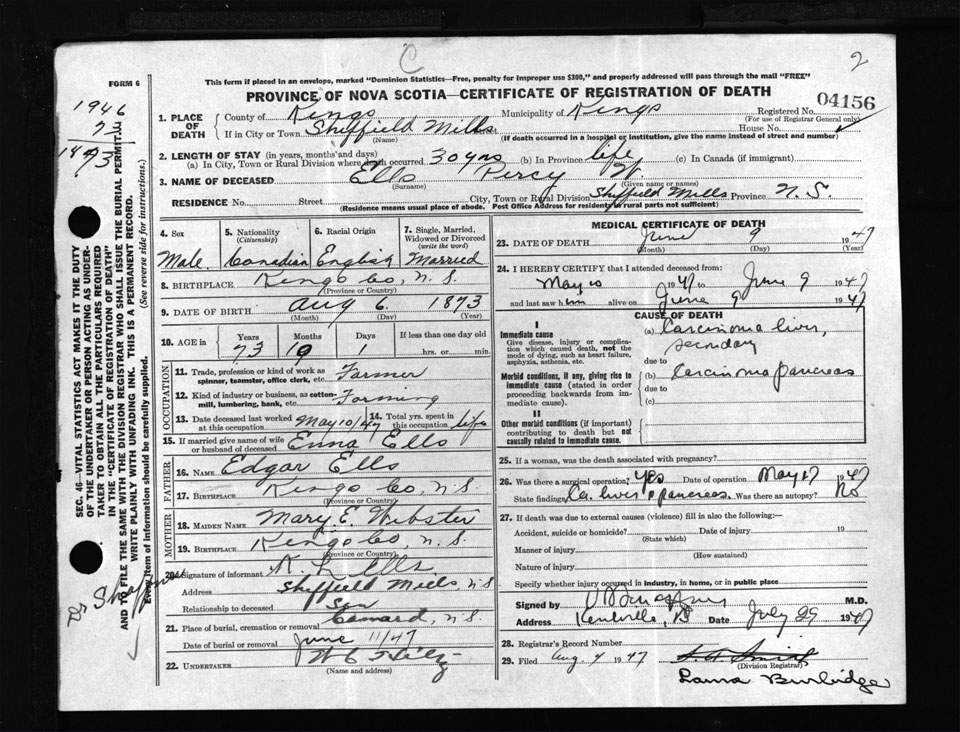 C
2
FORM 6
This form if placed in an envelope, marked "Dominion Statistics—Free, penalty for improper use $300," and properly addressed will pass through the mail "FREE"
PROVINCE OF NOVA SCOTIA—CERTIFICATE OF REGISTRATION OF DEATH
1946
73
1873
SEC. 46—VITAL STATISTICS ACT MAKES IT THE DUTY
OF THE UNDERTAKER OR PERSON ACTING AS UNDER-
TAKER TO OBTAIN ALL THE PARTICULARS REQUIRED
IN THE "CERTIFICATE OF REGISTRATION OF DEATH"
AND TO FILE THE SAME WITH THE DIVISION REGISTRAR WHO SHALL ISSUE THE BURIAL PERMIT.
WRITE PLAINLY WITH UNFADING INK. THIS IS A PERMANENT RECORD.
Every item of information should be carefully supplied. (See reverse side for instructions.)
1. PLACE OF DEATH County of Kings Municipality of Kings Registered No. 04156
(For use of Registrar General only)
If in City or Town Sheffield Mills House No.
(Name) (If death occurred in a hospital or institution, give the name instead of street and number)
2. LENGTH OF STAY (in years, months and days)
(a) In City, Town or Rural Division where death occurred 30 yrs (b) In Province life (c) In Canada (if immigrant)
3. NAME OF DECEASED Ells Percy W.
(Surname) (Given name or names)
RESIDENCE No. Street City, Town or Rural Division Sheffield Mills Province N.S.
(Residence means usual place of abode. Post Office Address for residents in rural parts not sufficient)
4. Sex 5. Nationality (Citizenship) 6. Racial Origin 7. Single, Married, Widowed or Divorced (write the word)
Male Canadian English Married
8. BIRTHPLACE Kings Co, N.S.
(Province or Country)
9. DATE OF BIRTH Aug 6 1873
(Month) (Day) (Year)
10. AGE in Years Months Days If less than one day old
73 10 1 hrs. or min.
OCCUPATION
11. Trade, profession or kind of work as spinner, teamster, office clerk, etc. Farmer
12. Kind of industry or business, as cotton-mill, lumbering, bank, etc. Farming
13. Date deceased last worked at this occupation May 10/47 14. Total yrs. spent in this occupation life
15. If married give name of wife or husband of deceased Enna Ells
FATHER
16. NAME Edgar Ells
17. BIRTHPLACE Kings Co, N.S.
(Province or Country)
MOTHER
18. MAIDEN NAME Mary E. Webster
19. BIRTHPLACE Kings Co, N.S.
(Province or Country)
20. Signature of informant Ells
Address Sheffield Mills, N.S.
Relationship to deceased Son
21. Place of burial, cremation or removal N.S.
Date of burial or removal June 11/47
22. UNDERTAKER
(Name and address)
MEDICAL CERTIFICATE OF DEATH
23. DATE OF DEATH June 9 1947
(Month) (Day) (Year)
24. I HEREBY CERTIFY that I attended deceased from:
May 10 1947 to June 9 1947
and last saw him alive on June 9 1947
CAUSE OF DEATH
I
Immediate cause
Give disease, injury or complication which caused death, not the mode of dying, such as heart failure, asphyxia, asthenia, etc.
(a) Carcinoma liver,
secondary
due to
Morbid conditions, if any, giving rise to immediate cause (stated in order proceeding backwards from immediate cause).
(b) Carcinoma pancreas
due to
(c)
II
Other morbid conditions (if important) contributing to death but not causally related to immediate cause.
25. If a woman, was the death associated with pregnancy?
26. Was there a surgical operation? yes Date of operation May 17 1947
State findings Ca. liver & pancreas Was there an autopsy? No
27. If death was due to external causes (violence) fill in also the following:—
Accident, suicide or homicide? Date of injury 19
(State which)
Manner of injury
(How sustained)
Nature of injury
Specify whether injury occurred in industry, in home, or in public place
Signed by M.D.
Address Kentville, Date July 29 1947
28. Registrar's Record Number
29. Filed Aug. 4 1947
(Division Registrar)
Laura Burbidge